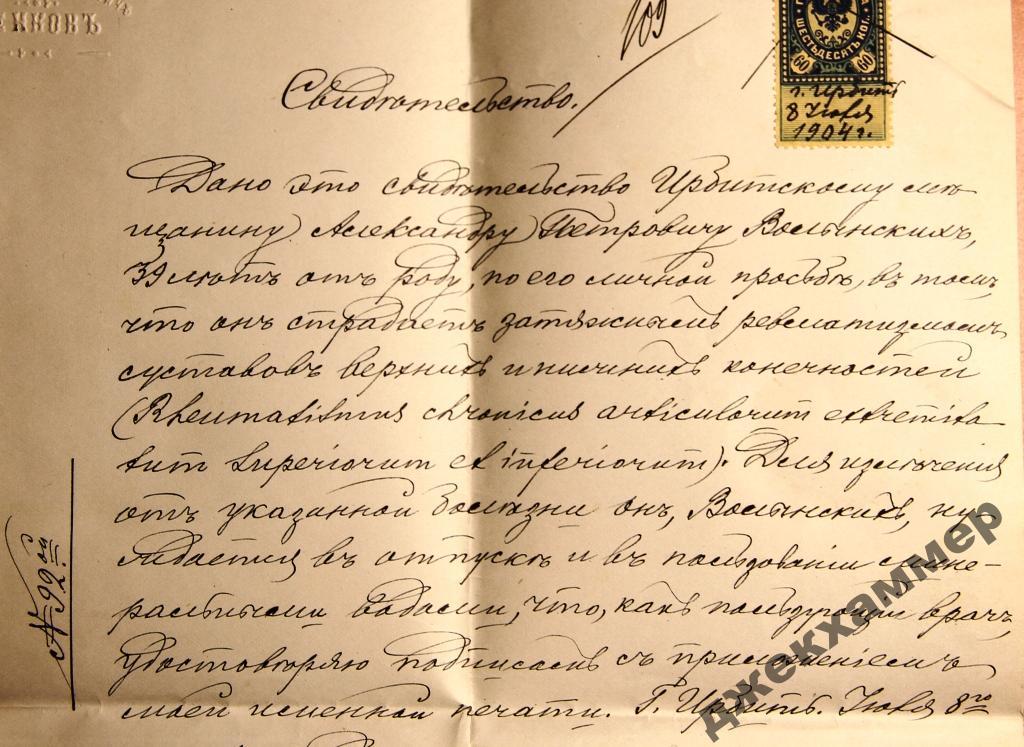 НКОВЪ
109
ШЕСТЬДЕСЯТЪ КОП.
60 60
г. Ирбитъ
8 Іюля
1904 г.
Свидѣтельство.
Дано это свидѣтельство Ирбитскому мѣ
щанину Александру Петровичу Волынскихъ,
39 лѣтъ отъ роду, по его личной просьбѣ, въ томъ,
что онъ страдаетъ затяжнымъ ревматизмомъ
суставовъ верхнихъ и нижнихъ конечностей
(Rheumatismus chronicus articulorum extremita
tum superiorum et inferiorum). Для излеченія
отъ указанной болѣзни онъ, Волынскихъ, ну
ждается въ отпускѣ и въ пользованіи мине-
ральными водами, что, какъ пользующій врачъ,
удостовѣряю подписомъ съ приложеніемъ
моей именной печати. Г. Ирбитъ. Іюля 8го
№ 92ой
джекхаммер